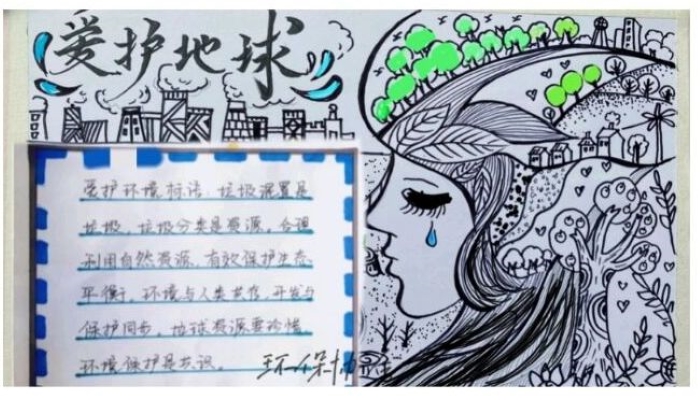 爱护地球
爱护环境标语，垃圾混置是
垃圾，垃圾分类是资源。合理
利用自然资源，有效保护生态
平衡。环境与人类共存，开发与
保护同步。地球资源要珍惜
环境保护是共识。
环保